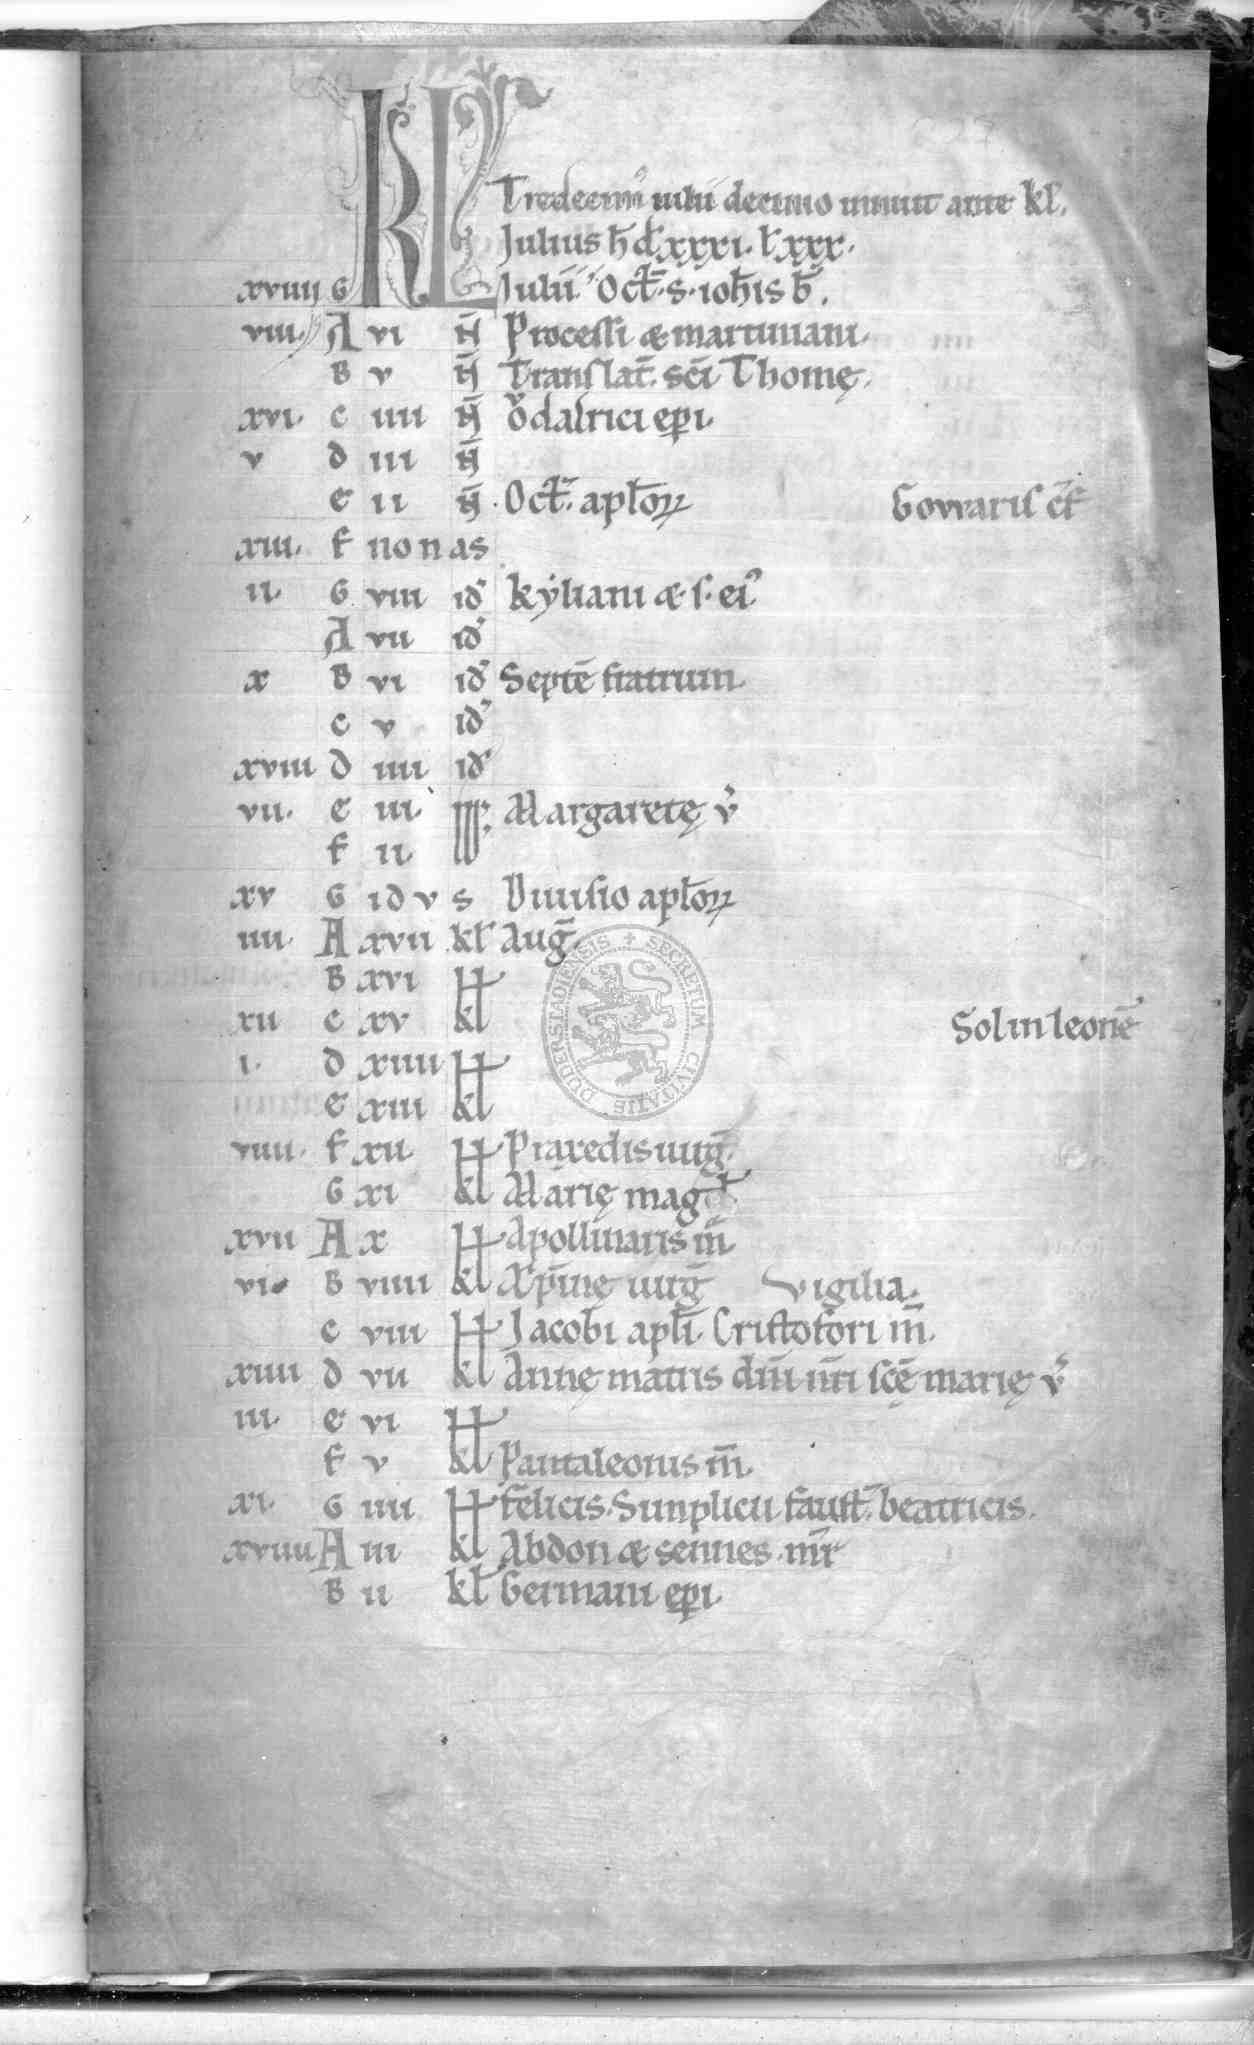 KL Tredecim⁹ iulii decimo innuit ante kł.
Julius h̄ d̄ xxxi. ł xxx.
xviiii G Iulii Oct̄. s. ioh̄is b̄.
viii. A vi N̄ Processi & martiniani.
B v N̄ Translat̄. sc̄i Thomę.
xvi. c iiii N̄ Vodalrici ep̄i.
v d iii N̄
e ii N̄. Oct̄. apłoꝝ
xiii. f nonas
ii. G viii id⁹ Kẏliani & s. ei⁹
A vii id⁹
x B vi id⁹ Septē fratrum.
c v id⁹
xviii d iiii id⁹
vii. e iii. Margaretę v̄
f ii
xv G idvs Diuisio apłoꝝ
iiii. A xvii kł Auḡ.
B xvi kł
xii c xv kł Sol in leonē
i. d xiiii kł
e xiii kł
viiii. f xii kł Praxedis uirḡ.
G xi kł Marię maḡ
xvii A x kł Apollinaris m̄
vi. B viiii kł Xp̄inę uirḡ Vigilia.
c viii kł Jacobi apłi. Cristofori m̄.
xiiii d vii kł Annę matris dn̄i nr̄i scę̄ marię v̄
iii. e vi kł
f v kł Pantaleonis m̄.
xi. G iiii kł felicis. Simplicii faust̄. beatricis.
xviiii A iii kł Abdon & sennes. mr̄
B ii kł Germani ep̄i.
SECRETUM CIVITATIS DUDERSTADIENSIS